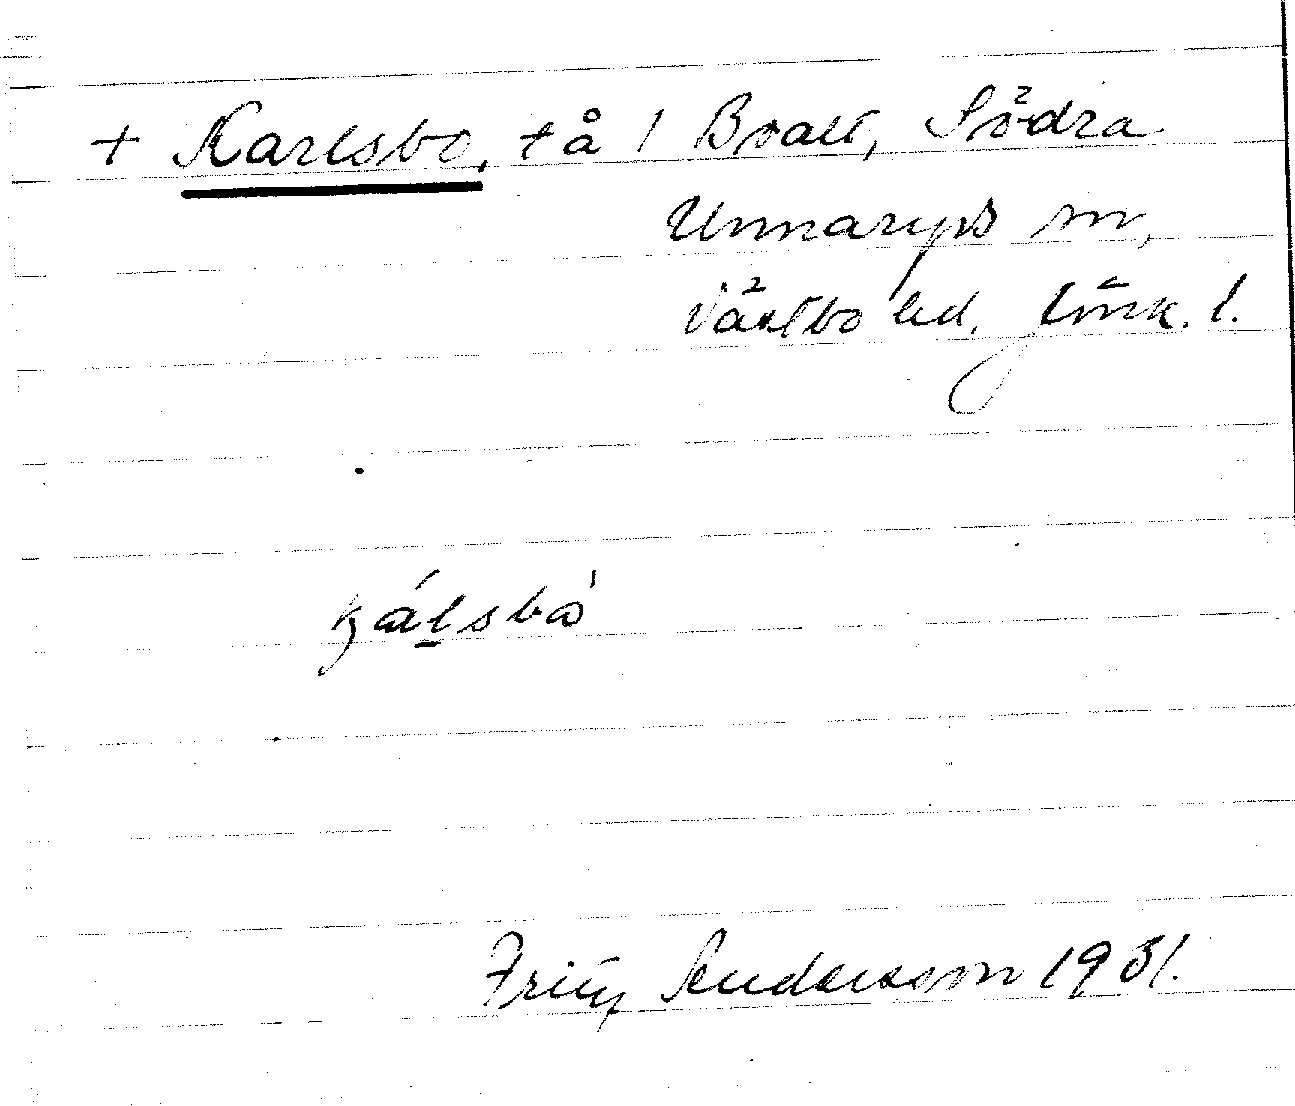 + Karlsbo, tå / Boatt, Södra
Unnaryds sn,
Västbo hd, Jönk. l.
kálsbò
Fritz Andersson 1931.